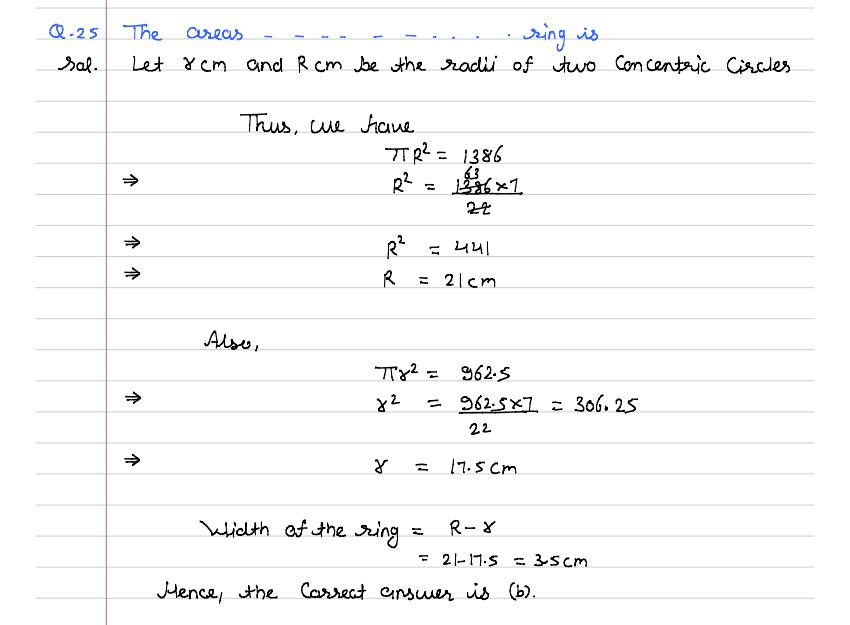 Q.25 The areas - - - - - - . . . . ring is
Sol. Let r cm and R cm be the radii of two Concentric Circles
Thus, we have
πR² = 1386
⇒ R² = 63 1386×7 / 22
⇒ R² = 441
⇒ R = 21cm
Also,
πr² = 962.5
⇒ r² = 962.5×7 / 22 = 306.25
⇒ r = 17.5cm
Width of the ring = R-r
= 21-17.5 = 3.5cm
Hence, the Correct answer is (b).